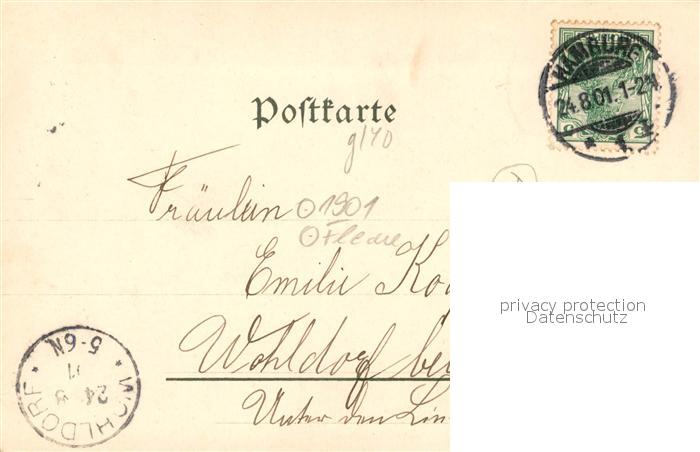 HAMBURG
24.8.01.1-2N.
* 1 f.
Postkarte
g/40
Fräulein
⊙1901
⊙Flecke
Emilie Ko
Wohldorf bei
Unter den Lin
WOHLDORF
* 5-6N *
24 8
01
privacy protection
Datenschutz